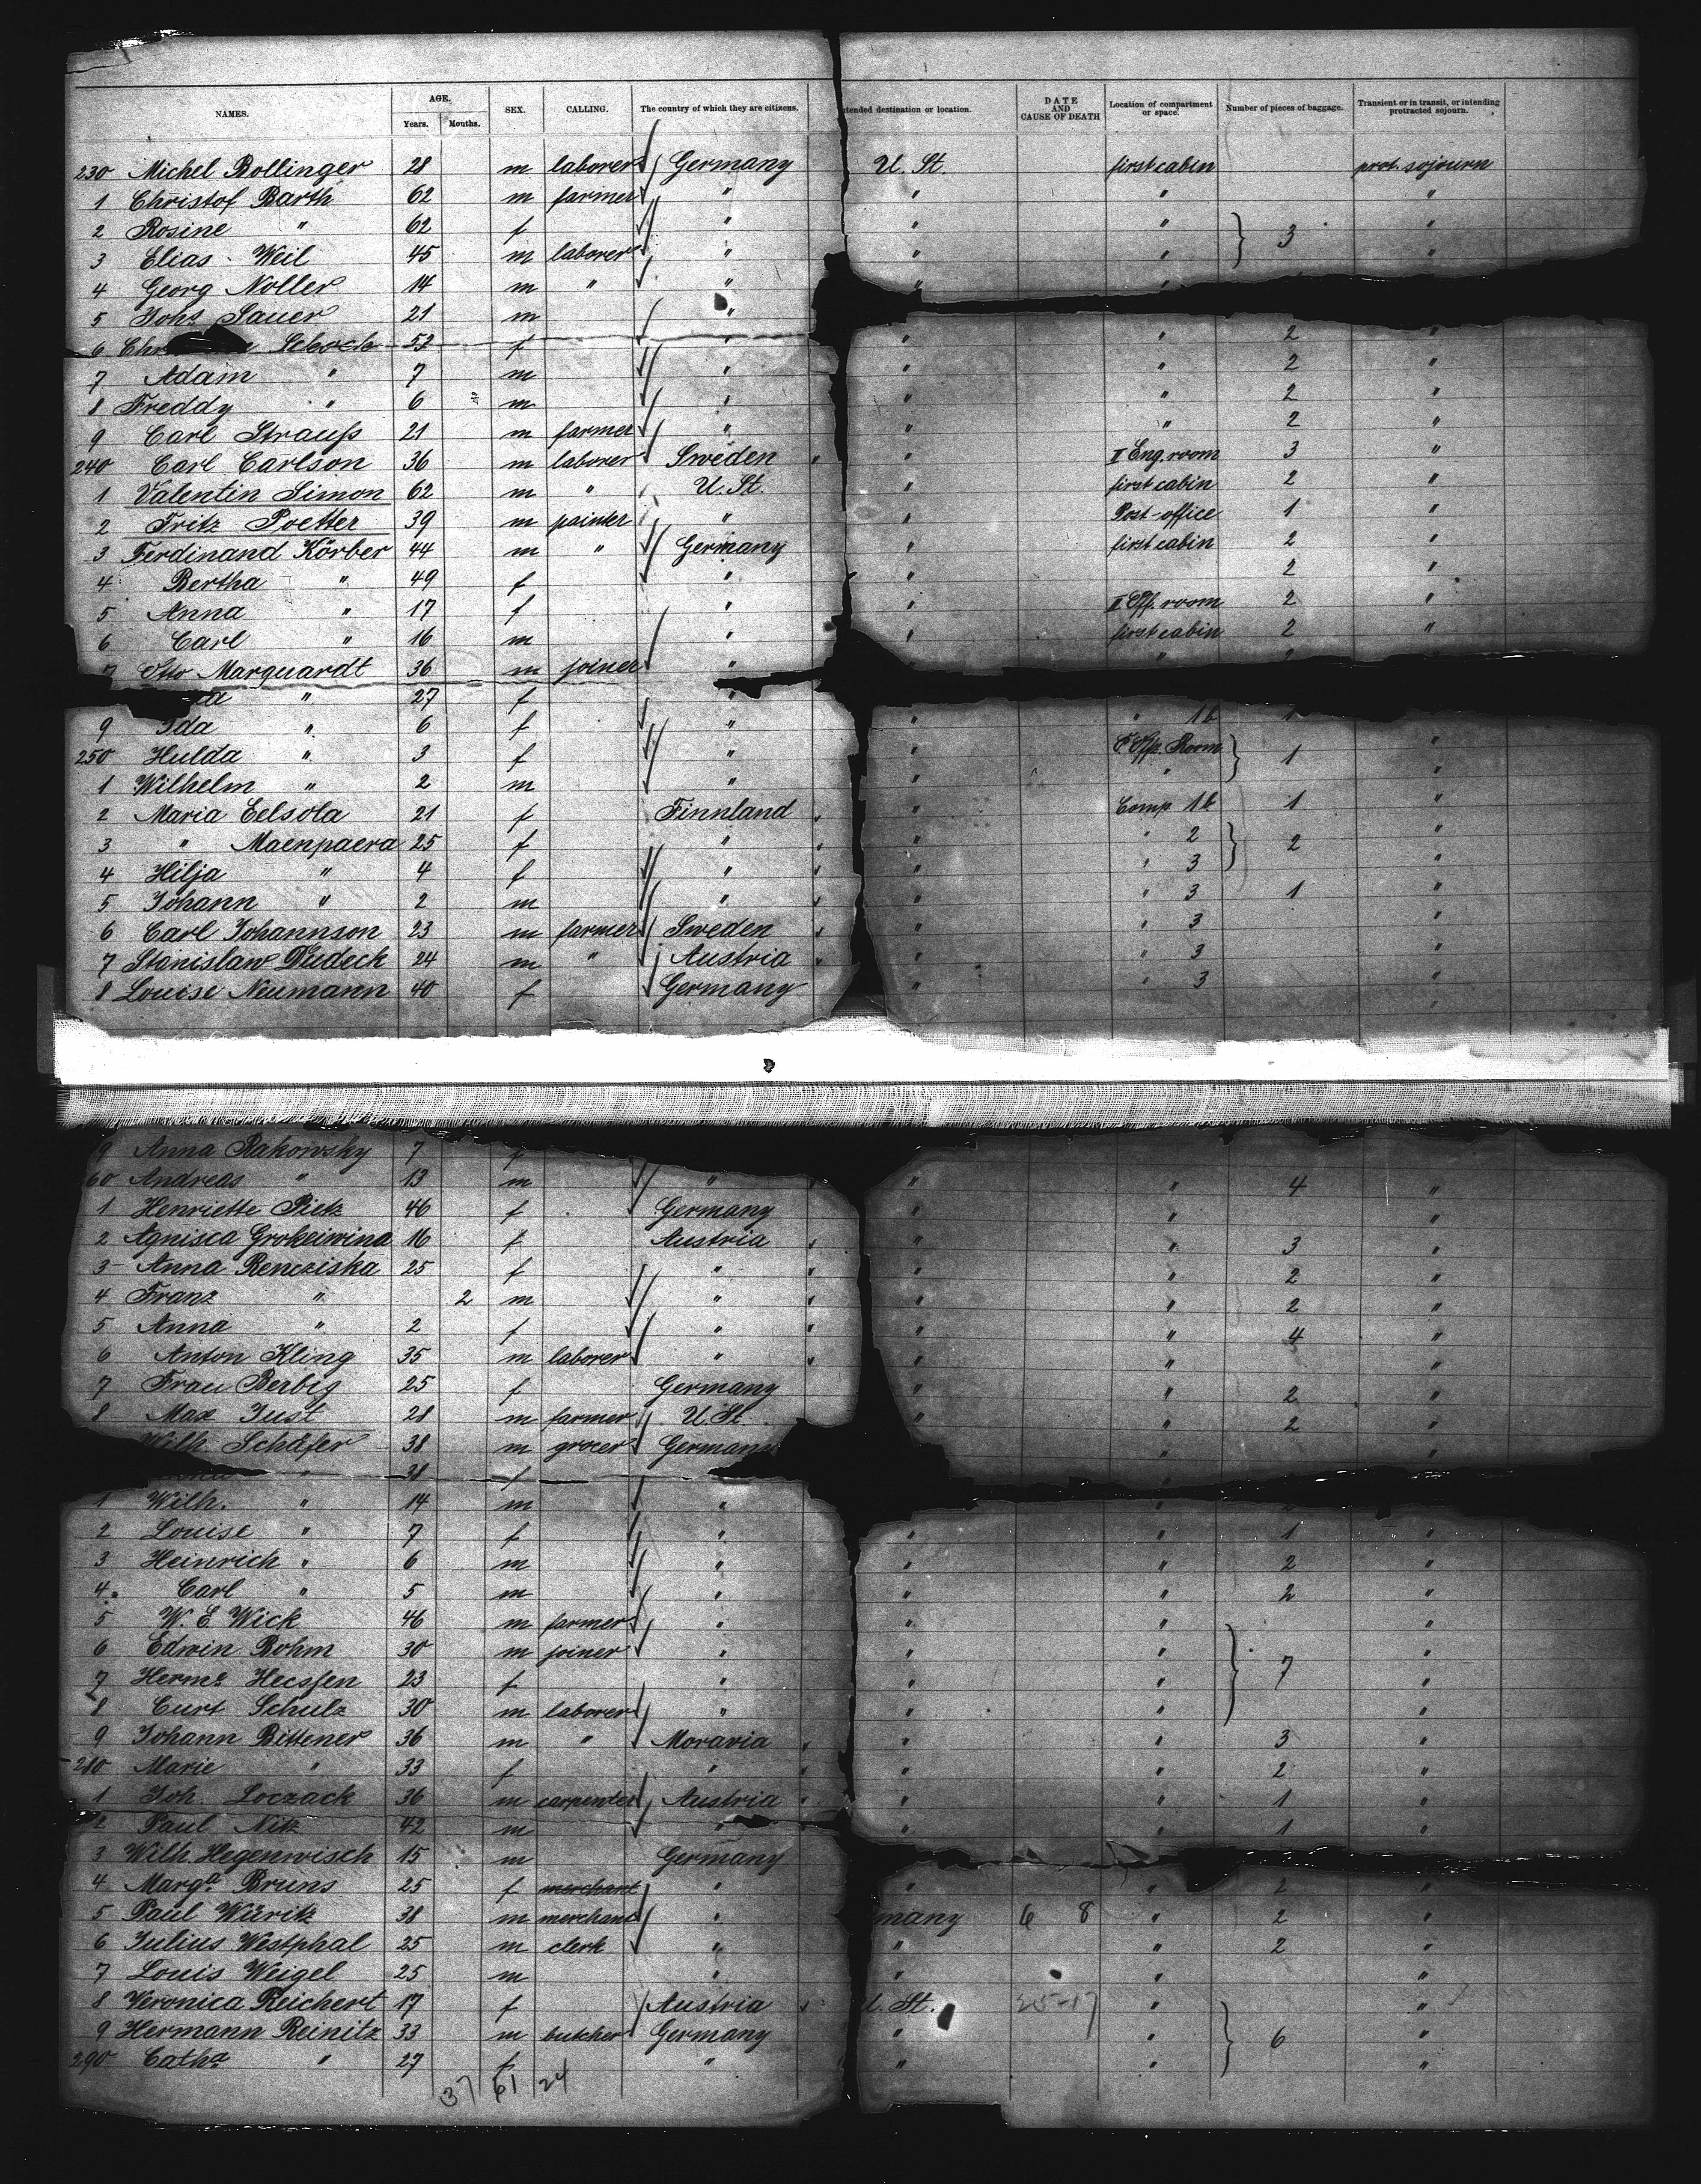 NAMES. AGE. Years. Months. SEX. CALLING. The country of which they are citizens. ntended destination or location. DATE AND CAUSE OF DEATH Location of compartment or space. Number of pieces of baggage. Transient or in transit, or intending protracted sojourn.
230 Michel Bollinger 28 m laborer Germany U. St. first cabin prot. sojourn
1 Christof Barth 62 m farmer " " " "
2 Rosine " 62 f " " " "
3 Elias Weil 45 m laborer " " " 3 "
4 Georg Noller 14 m " " " "
5 Johs Sauer 21 m "
6 Chr e Schoch 53 f " " " 2 "
7 Adam " 7 m " " " 2 "
8 Freddy " 6 m " " " 2 "
9 Carl Strauß 21 m farmer " " " 2 "
240 Carl Carlson 36 m laborer Sweden " " II Eng. room 3 "
1 Valentin Simon 62 m " U. St. " first cabin 2 "
2 Fritz Poetter 39 m painter " " Post-office 1 "
3 Ferdinand Körber 44 m " Germany " first cabin 2 "
4 Bertha " 49 f " " 2 "
5 Anna " 17 f " " II Off. room 2 "
6 Carl " 16 m " " first cabin 2 "
7 Otto Marquardt 36 m joiner " " "
" 27 f "
9 Ida " 6 f " " " 1b 1
250 Hulda " 3 f " " Off. Room 1 "
1 Wilhelm " 2 m " " " "
2 Maria Eelsola 21 f Finnland " " Comp 1b 1 "
3 " Maenpaera 25 f " " " " 2 2 "
4 Hilja " 4 f " " " " 3 "
5 Johann " 2 m " " " " 3 1 "
6 Carl Johannson 23 m farmer Sweden " " " 3 "
7 Stanislaw Dudeck 24 m " Austria " " " 3 "
8 Louise Neumann 40 f Germany " " 3 "
9 Anna Rakowsky 7 f
60 Andreas " 13 m " " " " 4 "
1 Henriette Pietz 46 f Germany " " "
2 Agnisca Grokeiwina 16 f Austria " " " 3 "
3 Anna Rencziska 25 f " " " " 2 "
4 Franz " 2 m " " " " 2 "
5 Anna " 2 f " " " " 4 "
6 Anton Kling 35 m laborer " " " " "
7 Frau Berbig 25 f Germany " " 2 "
8 Max Just 28 m farmer U. St. " " 2 "
Wilh. Schäfer 38 m grocer Germany " "
" 38 f
1 Wilh. " 14 m "
2 Louise " 7 f " " " 1 "
3 Heinrich " 6 m " " " 2 "
4 Carl " 5 m " " " 2 "
5 W. E. Wick 46 m farmer " " " "
6 Edwin Bohm 30 m joiner " " " "
7 Herme Hecssen 23 f " " " 7 "
8 Curt Schulz 30 m laborer " " " "
9 Johann Bittener 36 m " Moravia " " " 3 "
280 Marie " 33 f " " " " 2 "
1 Joh. Loczack 36 m carpenter Austria " " " 1 "
2 Paul Nitz 42 m " " " 1 "
3 Wilh. Hegenwisch 15 m Germany
4 Marga Bruns 25 f merchant " " " 2 "
5 Paul Würitz 38 m merchant " many 6 8 " 2 "
6 Julius Westphal 25 m clerk " " " 2 "
7 Louis Weigel 25 m " " " "
8 Veronica Reichert 17 f Austria " U. St. 25-17 " "
9 Hermann Reinitz 33 m butcher Germany " " 6 "
290 Catha " 27 f " " " "
37 61 24